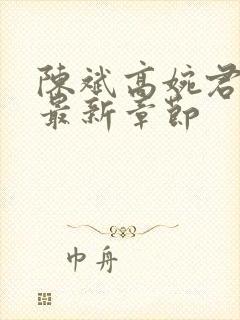 陳斌高婉君
最新章節
巾舟